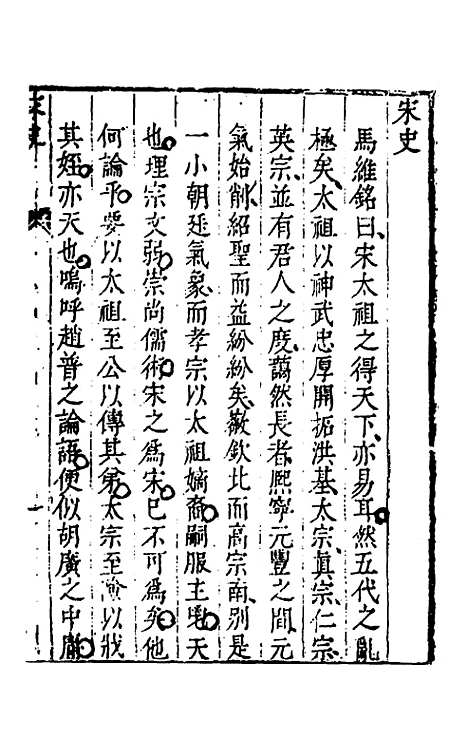 宋史
馬維銘曰宋太祖之得天下亦易耳然五代之亂
極矣太祖以神武忠厚開拓洪基太宗真宗仁宗
英宗並有君人之度藹然長者熙寧元豐之間元
氣始削紹聖而益紛紛矣徽欽北而高宗南別是
一小朝廷氣象而孝宗以太祖嫡裔嗣服主鬯天
也理宗文弱崇尚儒術宋之為宋已不可為矣他
何論乎要以太祖至公以傳其弟太宗至 以戕
其姪亦天也嗚呼趙普之論語便似胡廣之中庸
宋史